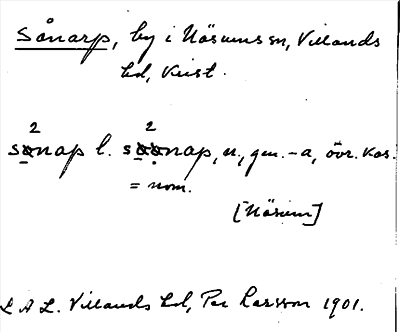 Sånarp, by i Näsums sn, Villands
hd, Krist.
sånap l. såånap, n., gen. -a, övr. kas.
= nom.
[Näsum]
L A L. Villands hd, Per Larsson 1901.